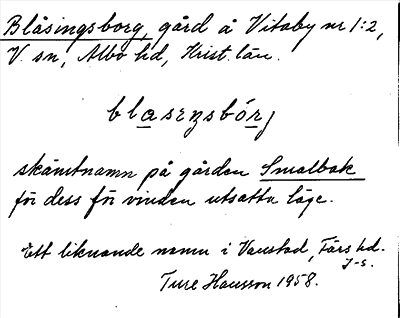 Blåsingsborg, gård å Vitaby nr 1:2,
V. sn, Albo hd, Krist. län.
skämtnamn på gården Smalbak
för dess för vinden utsatta läge.
Ett liknande namn i Vanstad, Färs hd.
J-s.
Ture Hansson 1958.